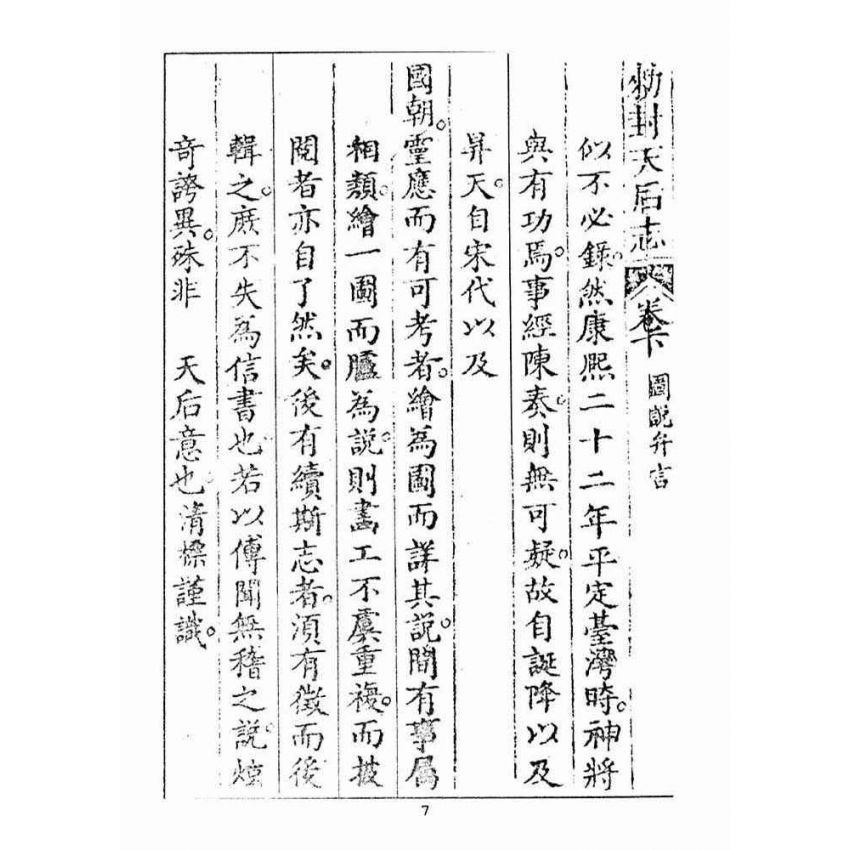 勑封天后志 卷下 圖說弁言
似不必錄。然康熙二十二年平定臺灣時。神將
與有功焉。事經陳奏。則無可疑。故自誕降以及
昇天。自宋代以及
國朝。靈應而有可考者。繪為圖而詳其說。間有事屬
相類。繪一圖而臚為說。則畫工不虞重複。而披
閱者亦自了然矣。後有續斯志者。須有徵而後
輯之。庶不失為信書也。若以傳聞無稽之說。炫
奇誇異。殊非 天后意也。清標謹識。
7